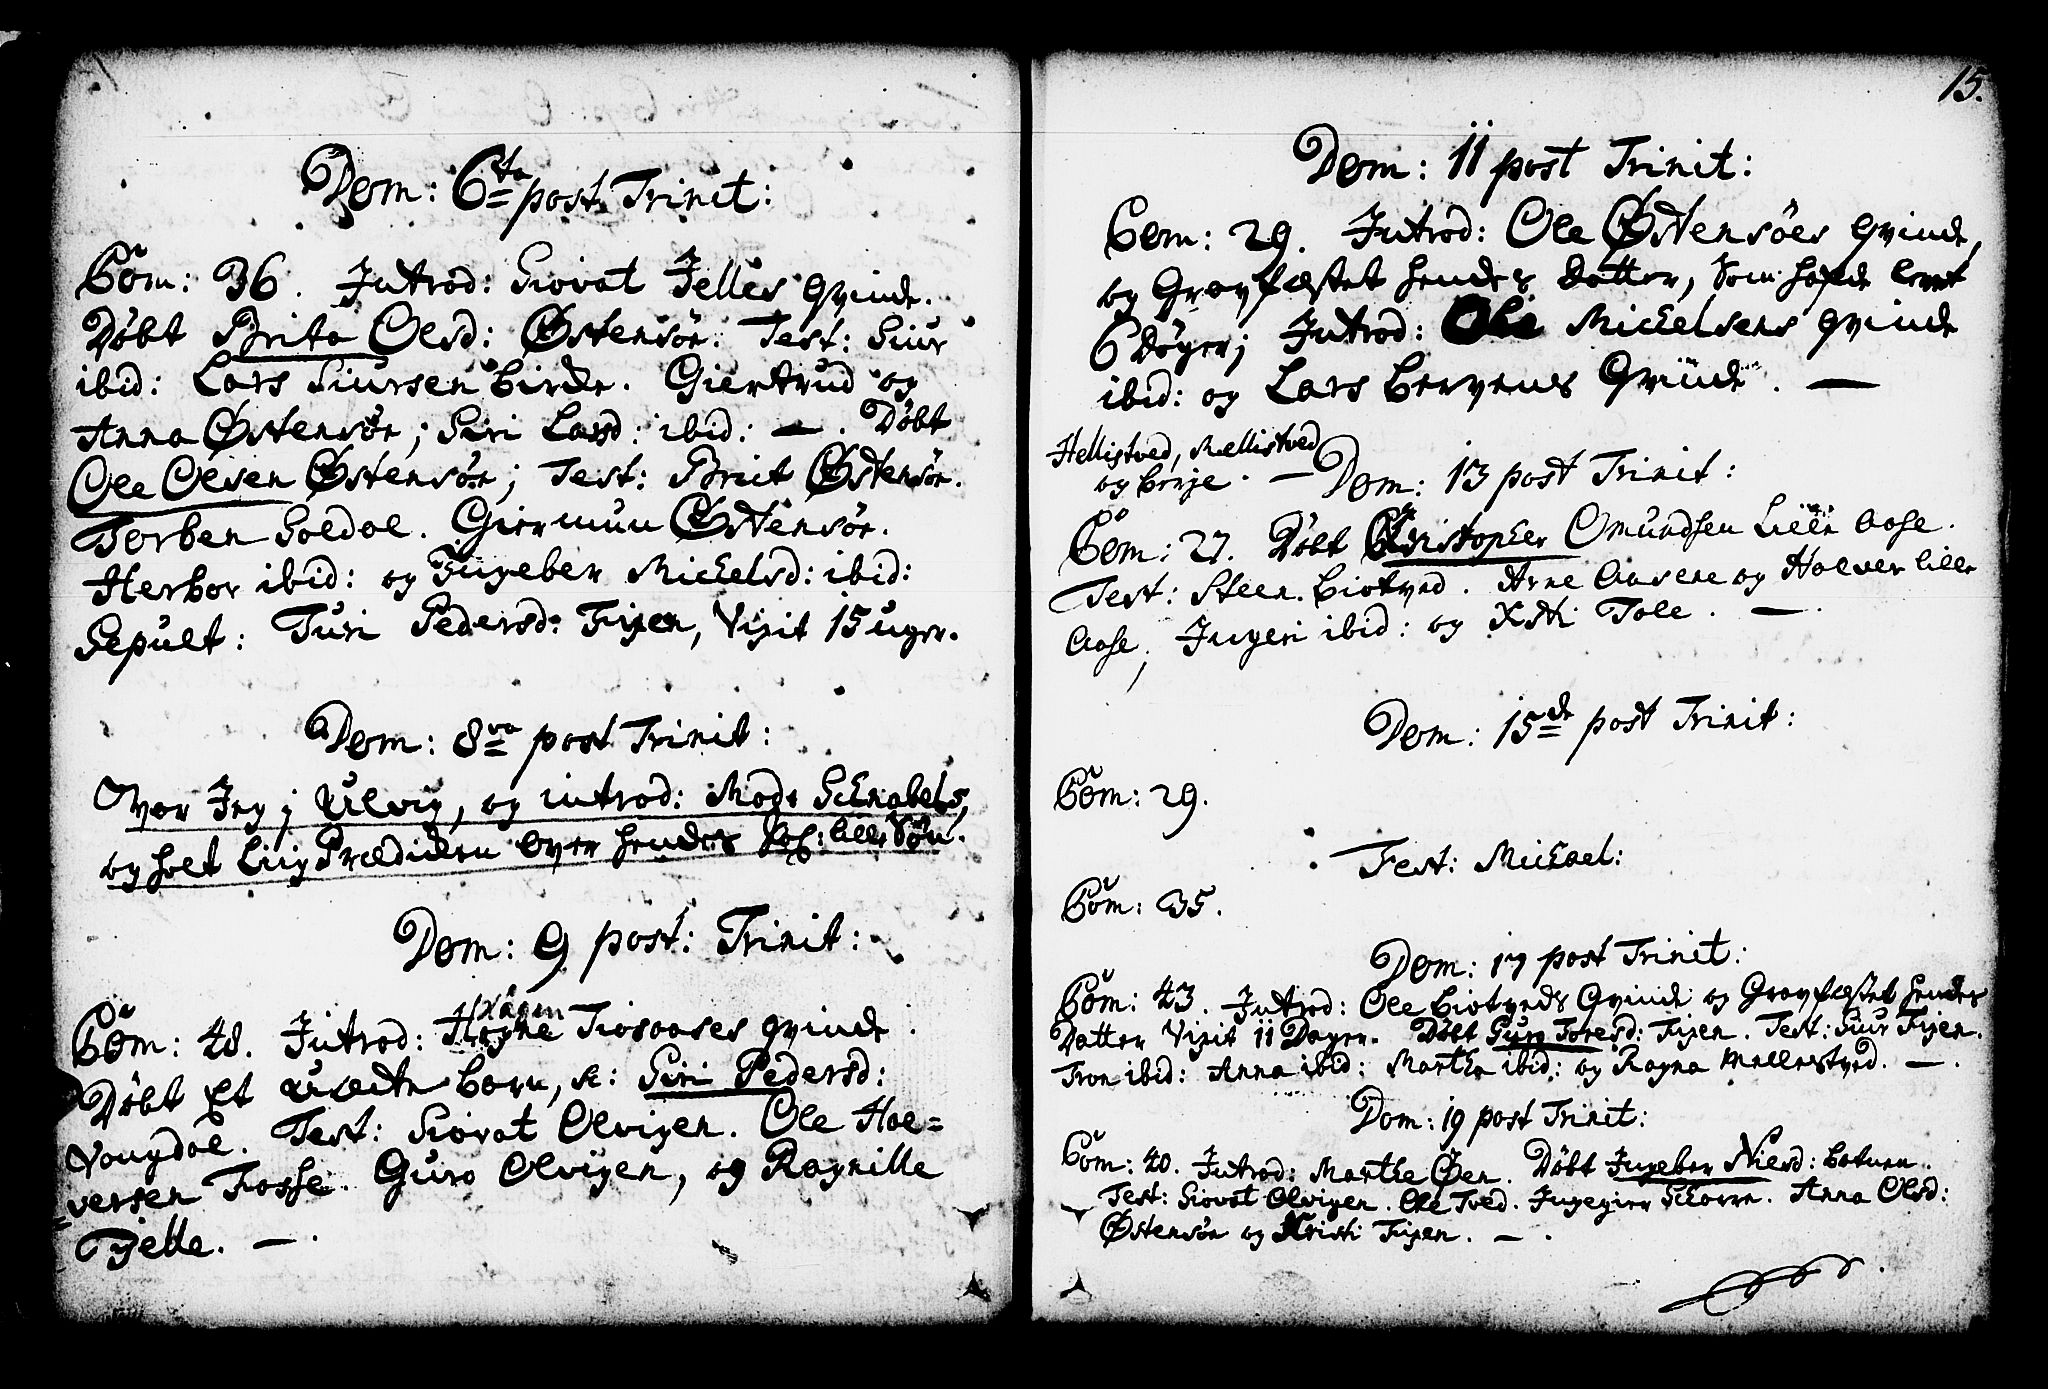 Dom: 6ta post Trinit:
Com: 36. Introd: Siovat Jelles Qvinde.
Döbt Brita Olsd: Østensöe. Test: Siur
ibid: Lars Siursen Birche. Giertrud og
Anna Østensöe; Siri Larsd: ibid: — . Döbt
Ole Olsen Østensöe; Test: Brit Østensöe.
Torben Soldal. Giermun Østensöe.
Herbor ibid: og Ingebor Mickelsd: ibid:
Sepult: Turi Pedersd: Fixen, Vixit 15 uger.
Dom: 8va post Trinit:
Var Jeg i Ulvig, og introd: Mad: Schnabels,
og holt Liig Prædicken over hendes lille Sön.
Dom: 9 post: Trinit:
Haagen
Com: 48. Introd: Tiosaases qvinde.
Döbt et uægte barn, sc: Siri Pedersd:
Vangdal. Test: Siovat Olvigen. Ole Hal=
=versen Fosse. Guro Olvigen, og Ragnille
Fjelle. — .
15.
Dom: 11 post Trinit:
Com: 29. Introd: Ole Østensöes Qvinde,
og Gravfæstet hendes datter, som hafde levet
6 döger; Introd: Ole Mickelsens qvinde
ibid: og Lars Bervens Qvinde. —
Hellistved, Mellistved
og Berje. — Dom: 13 post Trinit:
Com: 27. Döbt Christopher Omundsen Lille Aase.
Test: Steen Biotved. Arne Aasene og Halver lille
Aase, Ingeri ibid: og Kisti Tole. — .
Dom: 15de post Trinit:
Com: 29.
Fest: Michael:
Com: 35.
Dom: 17 post Trinit:
Com: 43. Introd: Ole Biotveds Qvinde og Gravfæstet hendes
Datter Vixit 11 Dager. Döbt Guro Toresd: Fixen. Test: Siur Fixen.
Tron ibid: Anna ibid: Marthe ibid: og Ragna Mellestved. — .
Dom: 19 post Trinit:
Com: 40. Introd: Marthe Øen. Döbt Ingebor Nielsd: Botnen.
Test: Siovat Olvigen. Ole Tved. Ingegier Skaaren. Anna Olsd:
Østensöe og Kristi Fixen. — .